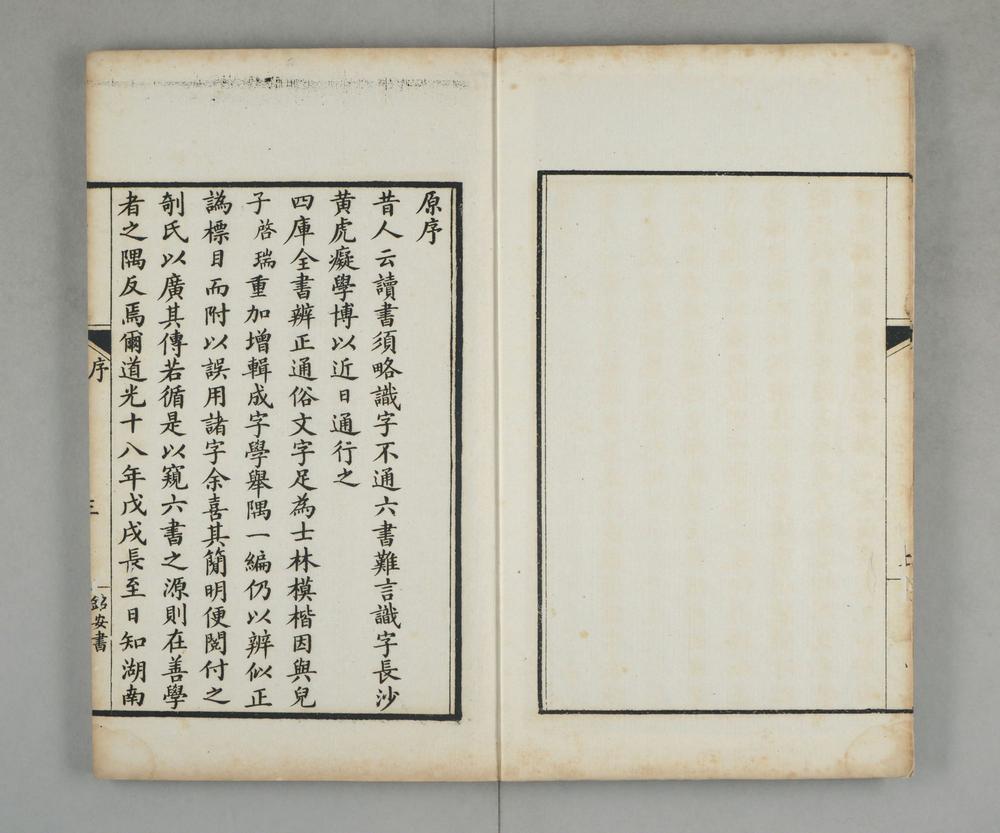 原序
昔人云讀書須略識字不通六書難言識字長沙
黃虎癡學博以近日通行之
四庫全書辨正通俗文字足為士林模楷因與兒
子啓瑞重加增輯成字學舉隅一編仍以辨似正
譌標目而附以誤用諸字余喜其簡明便閱付之
剞氏以廣其傳若循是以窺六書之源則在善學
者之隅反焉爾道光十八年戊戌長至日知湖南
序
三